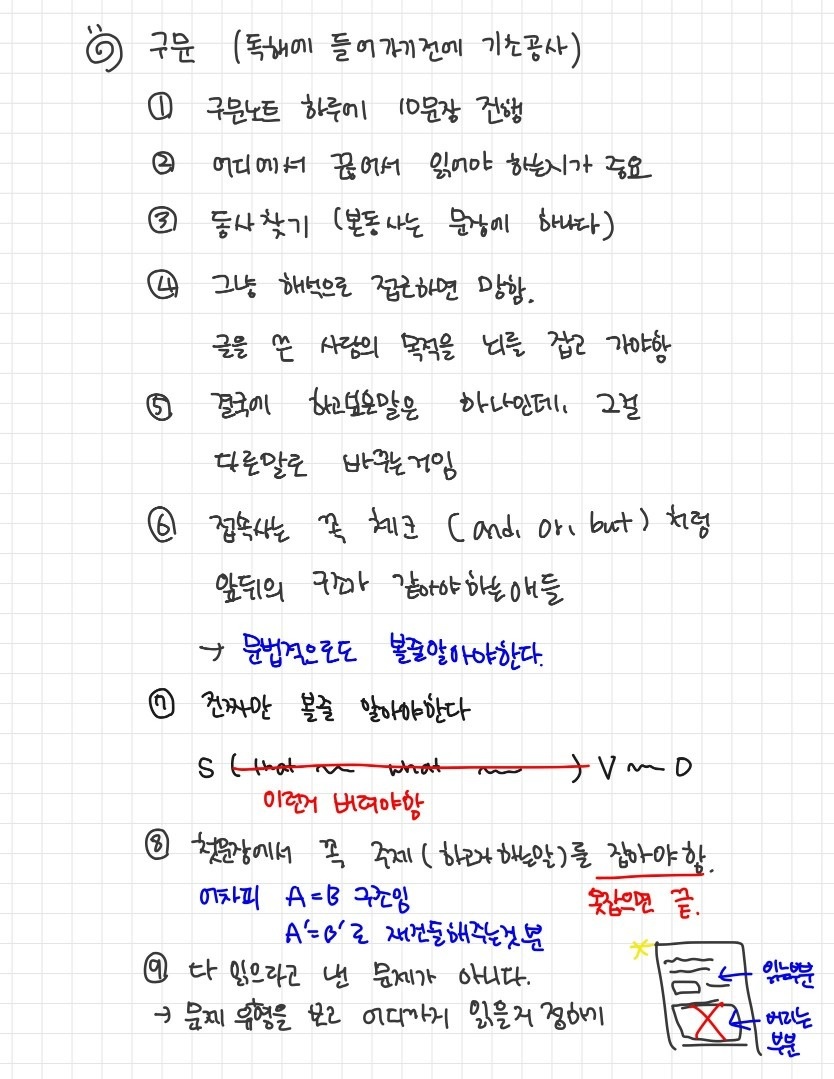 구문 (독해에 들어가기전에 기초공사)
① 구문노트 하루에 10문장 진행
② 어디에서 끊어서 읽어야 하는지가 중요
③ 동사찾기 (본동사는 문장에 하나다)
④ 그냥 해석으로 접근하면 망함.
글을 쓴 사람의 목적을 뇌를 잡고 가야함
⑤ 결국에 하고싶은말은 하나인데, 그걸
다른말로 바꾸는거임
⑥ 접속사는 꼭 체크 (and, or, but) 처럼
앞뒤의 구조가 같아야하는애들
→ 문법적으로도 볼줄알아야한다.
⑦ 진짜만 볼줄 알아야한다
S (that what ) V O
이런거 버려야함
⑧ 첫문장에서 꼭 주제(하고자하는말)를 잡아야함.
어차피 A=B 구조임
못잡으면 끝.
A'=B'로 재진술해주는것뿐
⑨ 다 읽으라고 낸 문제가 아니다.
읽는부분
→ 문제 유형을 보고 어디까지 읽을지 정하기
버리는
부분